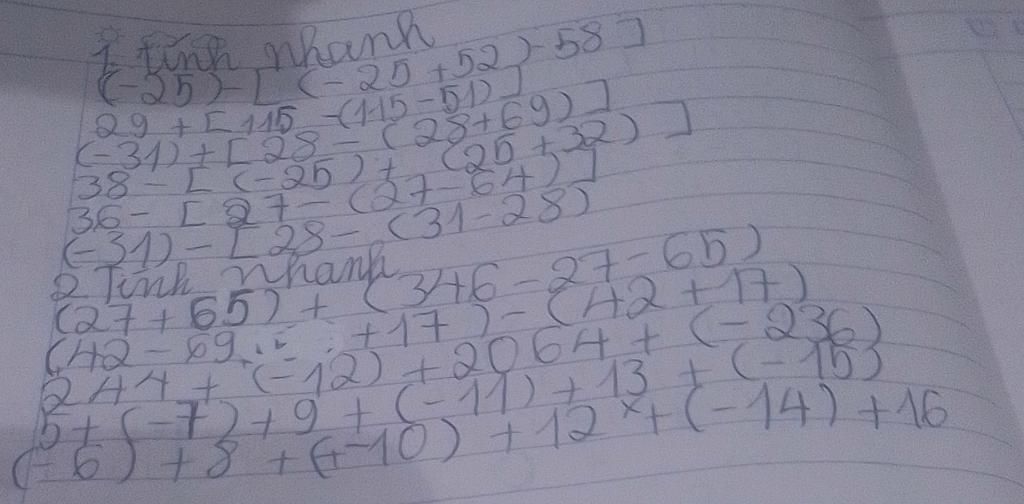 1 tính nhanh
(-25) - [ (-25 + 52) - 58 ]
29 + [ 115 - (115 - 51) ]
(-31) + [ 28 - (28 + 69) ]
38 - [ (-25) + (25 + 32) ]
36 - [ 27 - (27 - 64) ]
(-31) - [ 28 - (31 - 28)
2 Tính nhanh
(27 + 65) + (346 - 27 - 65)
(42 - 69 + 17) - (42 + 17)
244 + (-12) + 2064 + (-236)
5 + (-7) + 9 + (-11) + 13 + (-15)
(-6) + 8 + (-10) + 12 + (-14) + 16